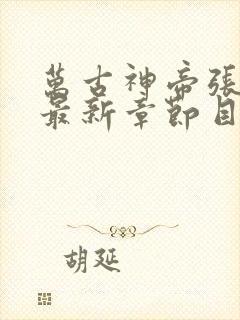 萬古神帝張
最新章節目
胡延